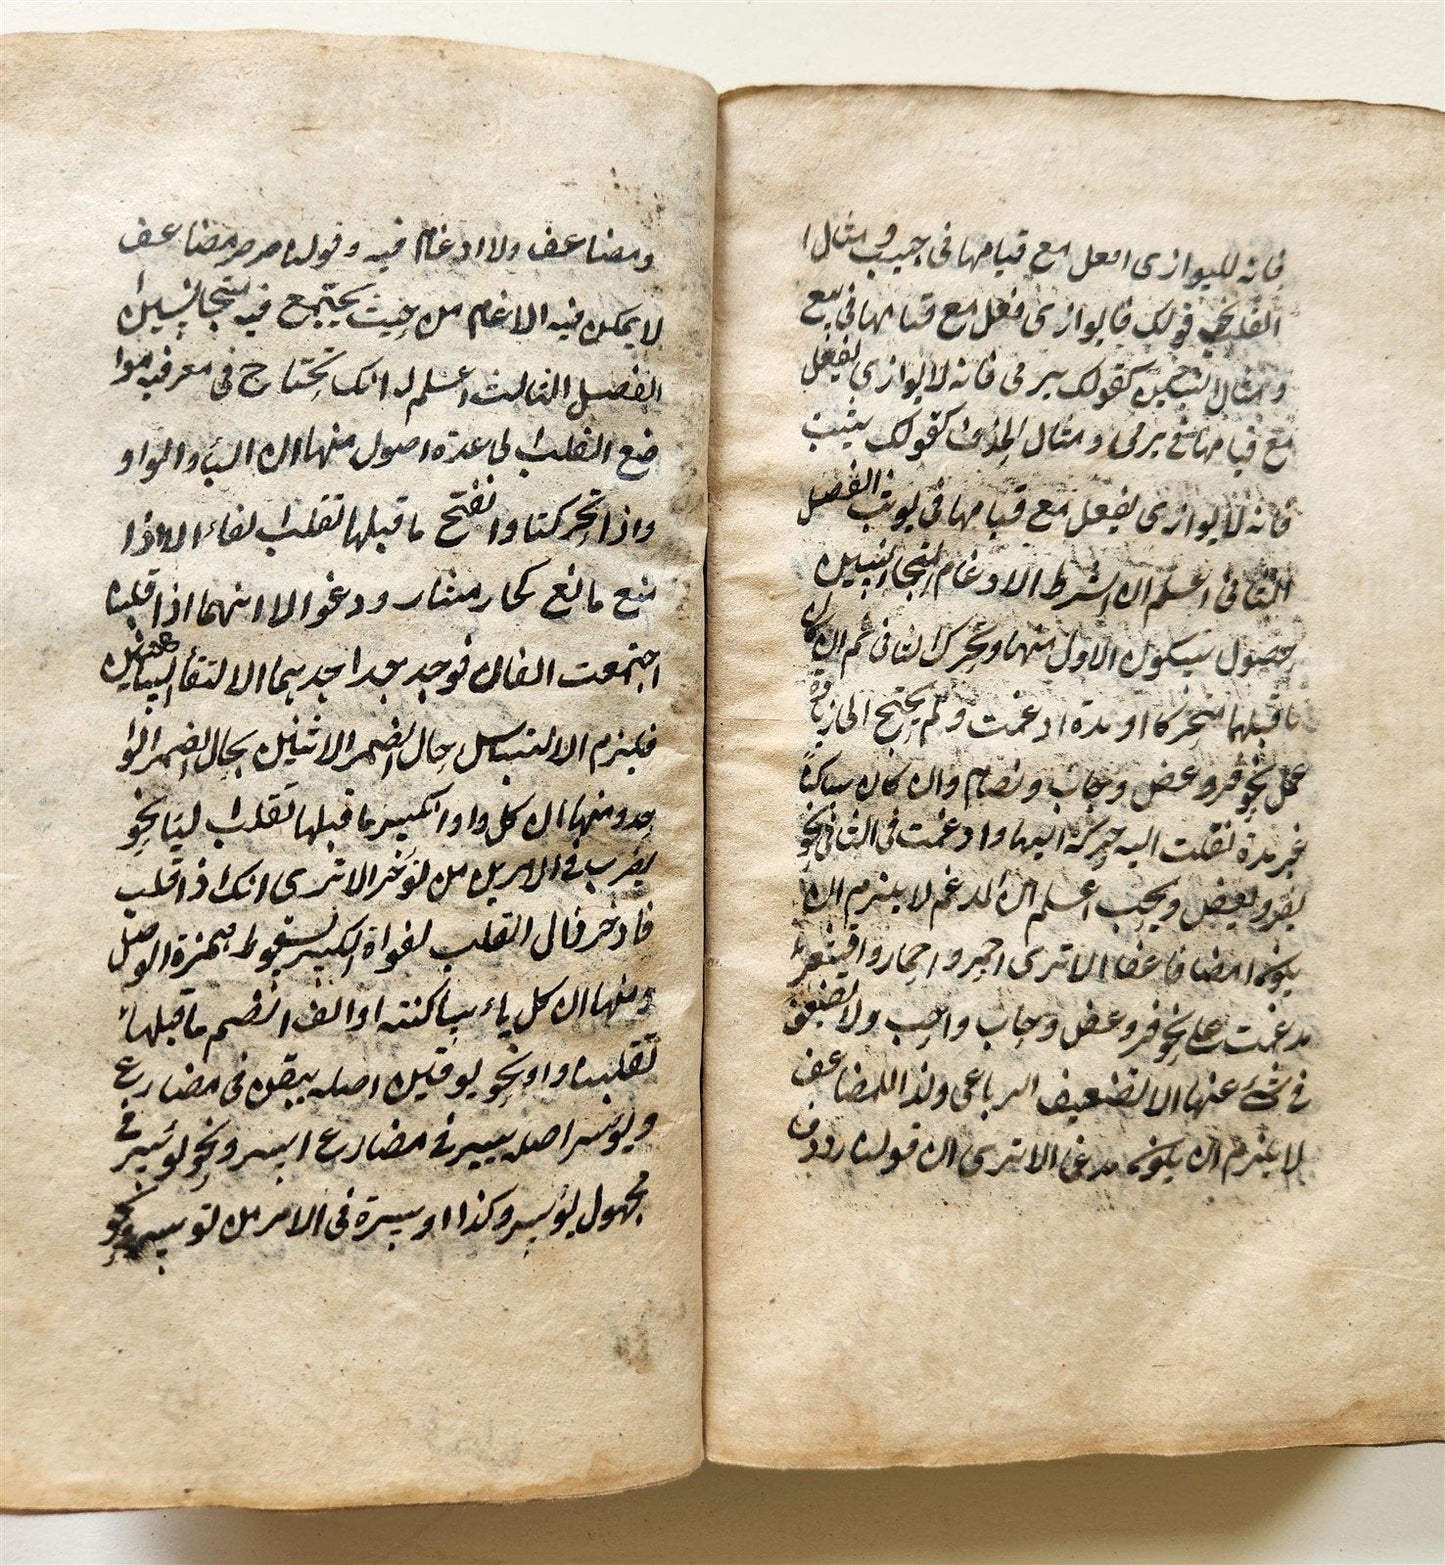 فانه لايوازى افعل مع قيامها فى جيب ومثال ا
القلب قولك فا يوازى فعل مع قيامها فى بيع
ومثال كقولك يرمى فانه لايوازى يفعل
مع قيامها فى يرمى ومثال الحذف كقولك يثبت
فانه لايوازى يفعل مع قيامها فى يوثب الفصل
الثانى اعلم ان شرط الادغام المتجانسين
حصول سكون الاول منهما وتحرك الثانى ثم ان كان
ما قبلهما متحركا او مدة ادغمت ولم يحتج الى زيادة
عمل نحو فر وعض وحاب وتصام وان كان ساكنا
غير مدة نقلت اليه حركة اليها وادغمت فى الثانى نحو
يفر ويعض ويحب اعلم ان المدغم لا يلزم ان
يكون مضاعفا الا ترى احمر واحمار واقشعر
مدغمت نحو فر وعض وحاب واحب ولا تضعيف
فى شئ عنها الا تضعيف الرباعى ولذا المضاعف
لا يلزم ان يكون مدغما الا ترى ان قولنا رددن
ومضاعف ولا ادغام فيه وقولنا صرصر مضاعف
لا يمكن فيه الادغام من حيث يجتمع فيه متجانسين
الفصل الثالث اعلم انك تحتاج فى معرفيه موا
ضع القلب لى عدة اصول منها ان الياء والواو
واذا تحركتا وانفتح ما قبلها تقلب لفاء الا اذا
منع مانع كجار ودغوا الا انهما اذا قلبنا
اجتمعت الفان فوجد بعد احديهما الالتقاء
فيلزم الالتباس حال الضمر الاثنين بحال الضمر الوا
حد ومنها ان كل واو انكسر ما قبلها تقلب ليا نحو
فى الامر من الا ترى انك اذ اقلب
فاذخر فال القلب لفواة الكسر لسقوط همزة الوصل
ومنها ان كل ياء ساكنته او الف انضم ما قبلها
تقلبنا واو نحو يوقن اصله ييقن فى مضارع
ويوسر اصله ييسر فى مضارع ايسر ونحو لوسير فى
مجهول يوسر وكذا اوسرة فى الامر من توسر ونحو